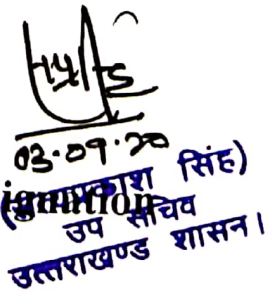 03.09.20
प्रकाश सिंह)
ignation
उप सचिव
उत्तराखण्ड शासन।